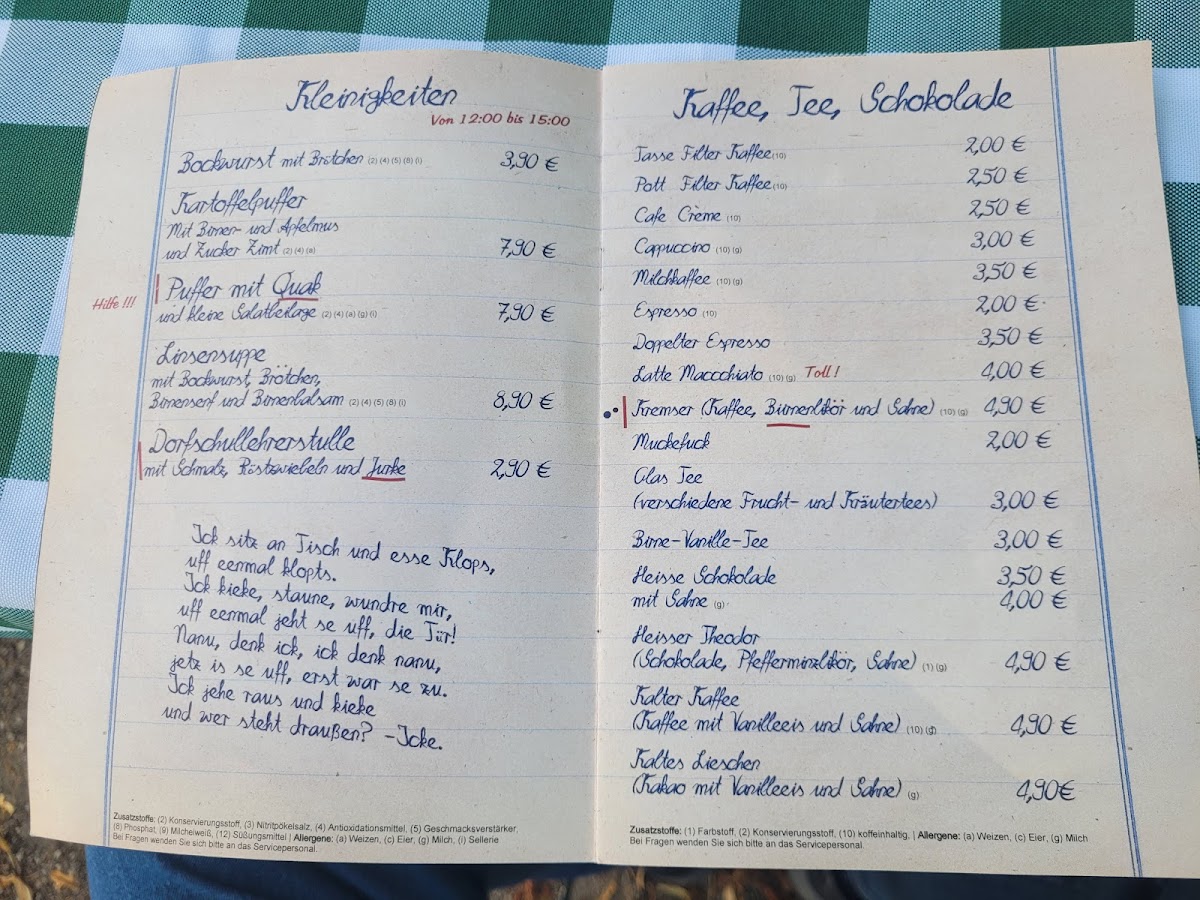 Kleinigkeiten
Von 12:00 bis 15:00
Bockwurst mit Brötchen (2) (4) (5) (8) (i) 3,90 €
Kartoffelpuffer
Mit Birnen- und Apfelmus
und Zucker Zimt (2) (4) (a) 7,90 €
Hilfe !!! Puffer mit Quak
und kleine Salatbeilage (2) (4) (a) (g) (i) 7,90 €
Linsensuppe
mit Bockwurst, Brötchen,
Birnensenf und Birnenbalsam (2) (4) (5) (8) (i) 8,90 €
Dorfschullehrerstulle
mit Schmalz, Röstzwiebeln und Jurke 2,90 €
Ick sitz an Tisch und esse Klops,
uff eenmal klopts.
Ick kieke, staune, wundre mir,
uff eenmal jeht se uff, die Tür!
Nanu, denk ick, ick denk nanu,
jetz is se uff, erst war se zu.
Ick jehe raus und kieke
und wer steht draußen? -Icke.
Zusatzstoffe: (2) Konservierungsstoff, (3) Nitritpökelsalz, (4) Antioxidationsmittel, (5) Geschmacksverstärker.
(8) Phosphat, (9) Milcheiweiß, (12) Süßungsmittel | Allergene: (a) Weizen, (c) Eier, (g) Milch, (i) Sellerie
Bei Fragen wenden Sie sich bitte an das Servicepersonal.
Kaffee, Tee, Schokolade
Tasse Filter Kaffee (10) 2,00 €
Pott Filter Kaffee (10) 2,50 €
Cafe Crème (10) 2,50 €
Cappuccino (10) (g) 3,00 €
Milchkaffee (10) (g) 3,50 €
Espresso (10) 2,00 €
Doppelter Espresso 3,50 €
Latte Maccchiato (10) (g) Toll! 4,00 €
Kremser (Kaffee, Birnenlikör und Sahne) (10) (g) 4,90 €
Muckefuck 2,00 €
Glas Tee
(verschiedene Frucht- und Kräutertees) 3,00 €
Birne-Vanille-Tee 3,00 €
Heisse Schokolade 3,50 €
mit Sahne (g) 4,00 €
Heisser Theodor
(Schokolade, Pfefferminzlikör, Sahne) (1) (g) 4,90 €
Kalter Kaffee
(Kaffee mit Vanilleeis und Sahne) (10) (g) 4,90 €
Kaltes Lieschen
(Kakao mit Vanilleeis und Sahne) (g) 4,90 €
Zusatzstoffe: (1) Farbstoff, (2) Konservierungsstoff, (10) koffeinhaltig, | Allergene: (a) Weizen, (c) Eier, (g) Milch
Bei Fragen wenden Sie sich bitte an das Servicepersonal.